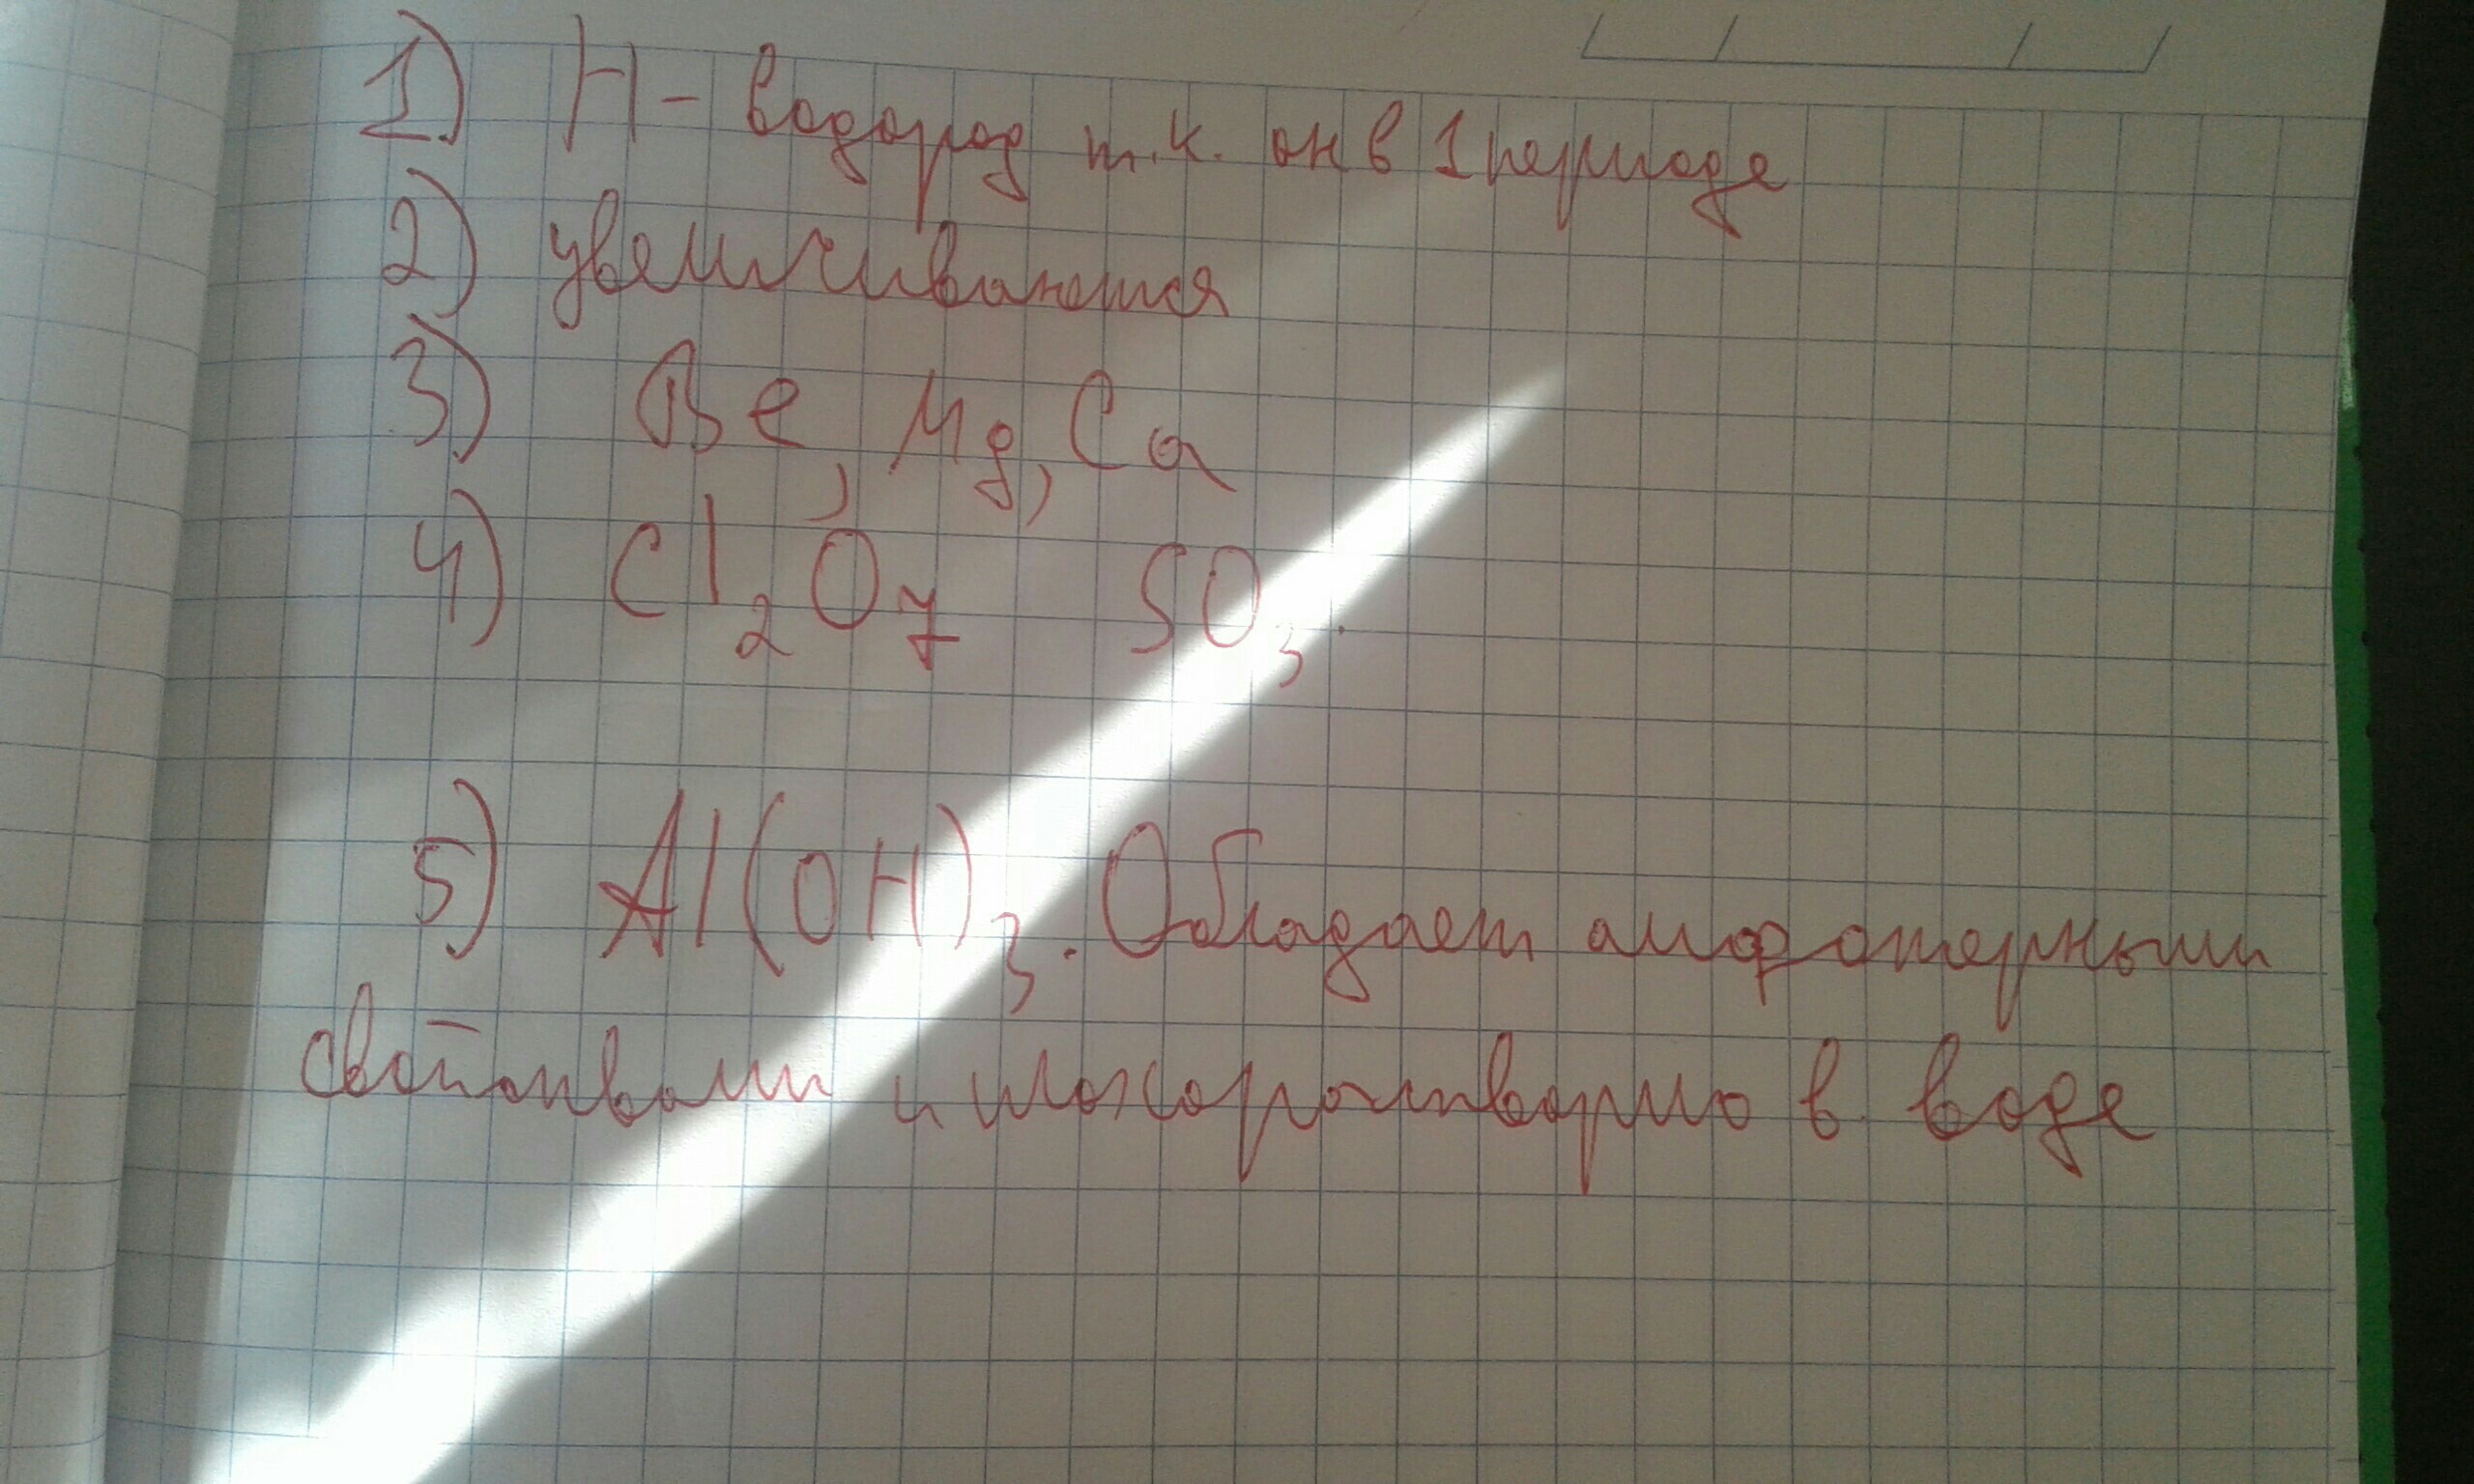 1) H - водород т.к. он в 1 периоде
2) увеличиваются
3) Be, Mg, Ca
4) Cl₂O₇ SO₃.
5) Al(OH)₃. Обладает амфотерными
свойствами и малорастворимо в воде